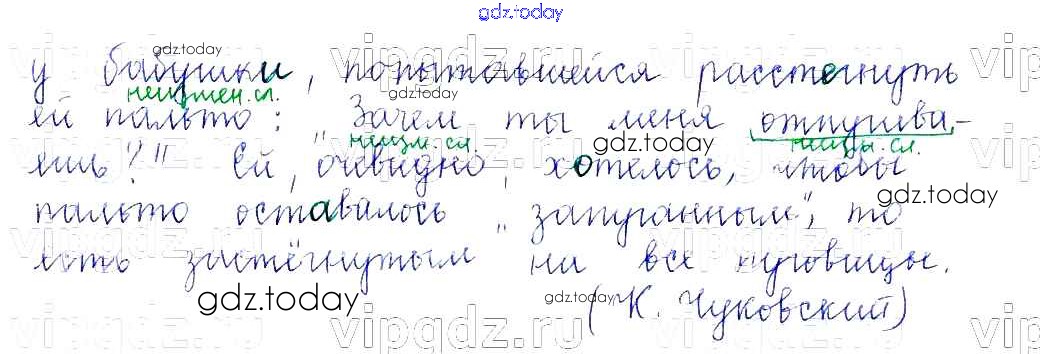 gdz.today
gdz.today
vipgdz.ru vipgdz.ru vip
у бабушки, попытавшейся расстегнуть
неизмен. сл. gdz.today
ей пальто: „Зачем ты меня отпугова-
неизм. сл. gdz.today
ешь?" Ей, очевидно, хотелось, чтобы
gdz.today
пальто оставалось „запуганным", то
vipgdz.ru vipgdz.ru vip
есть застёгнутым на все пуговицы.
gdz.today gdz.today
(К. Чуковский)
vipgdz.ru vipgdz.ru vip